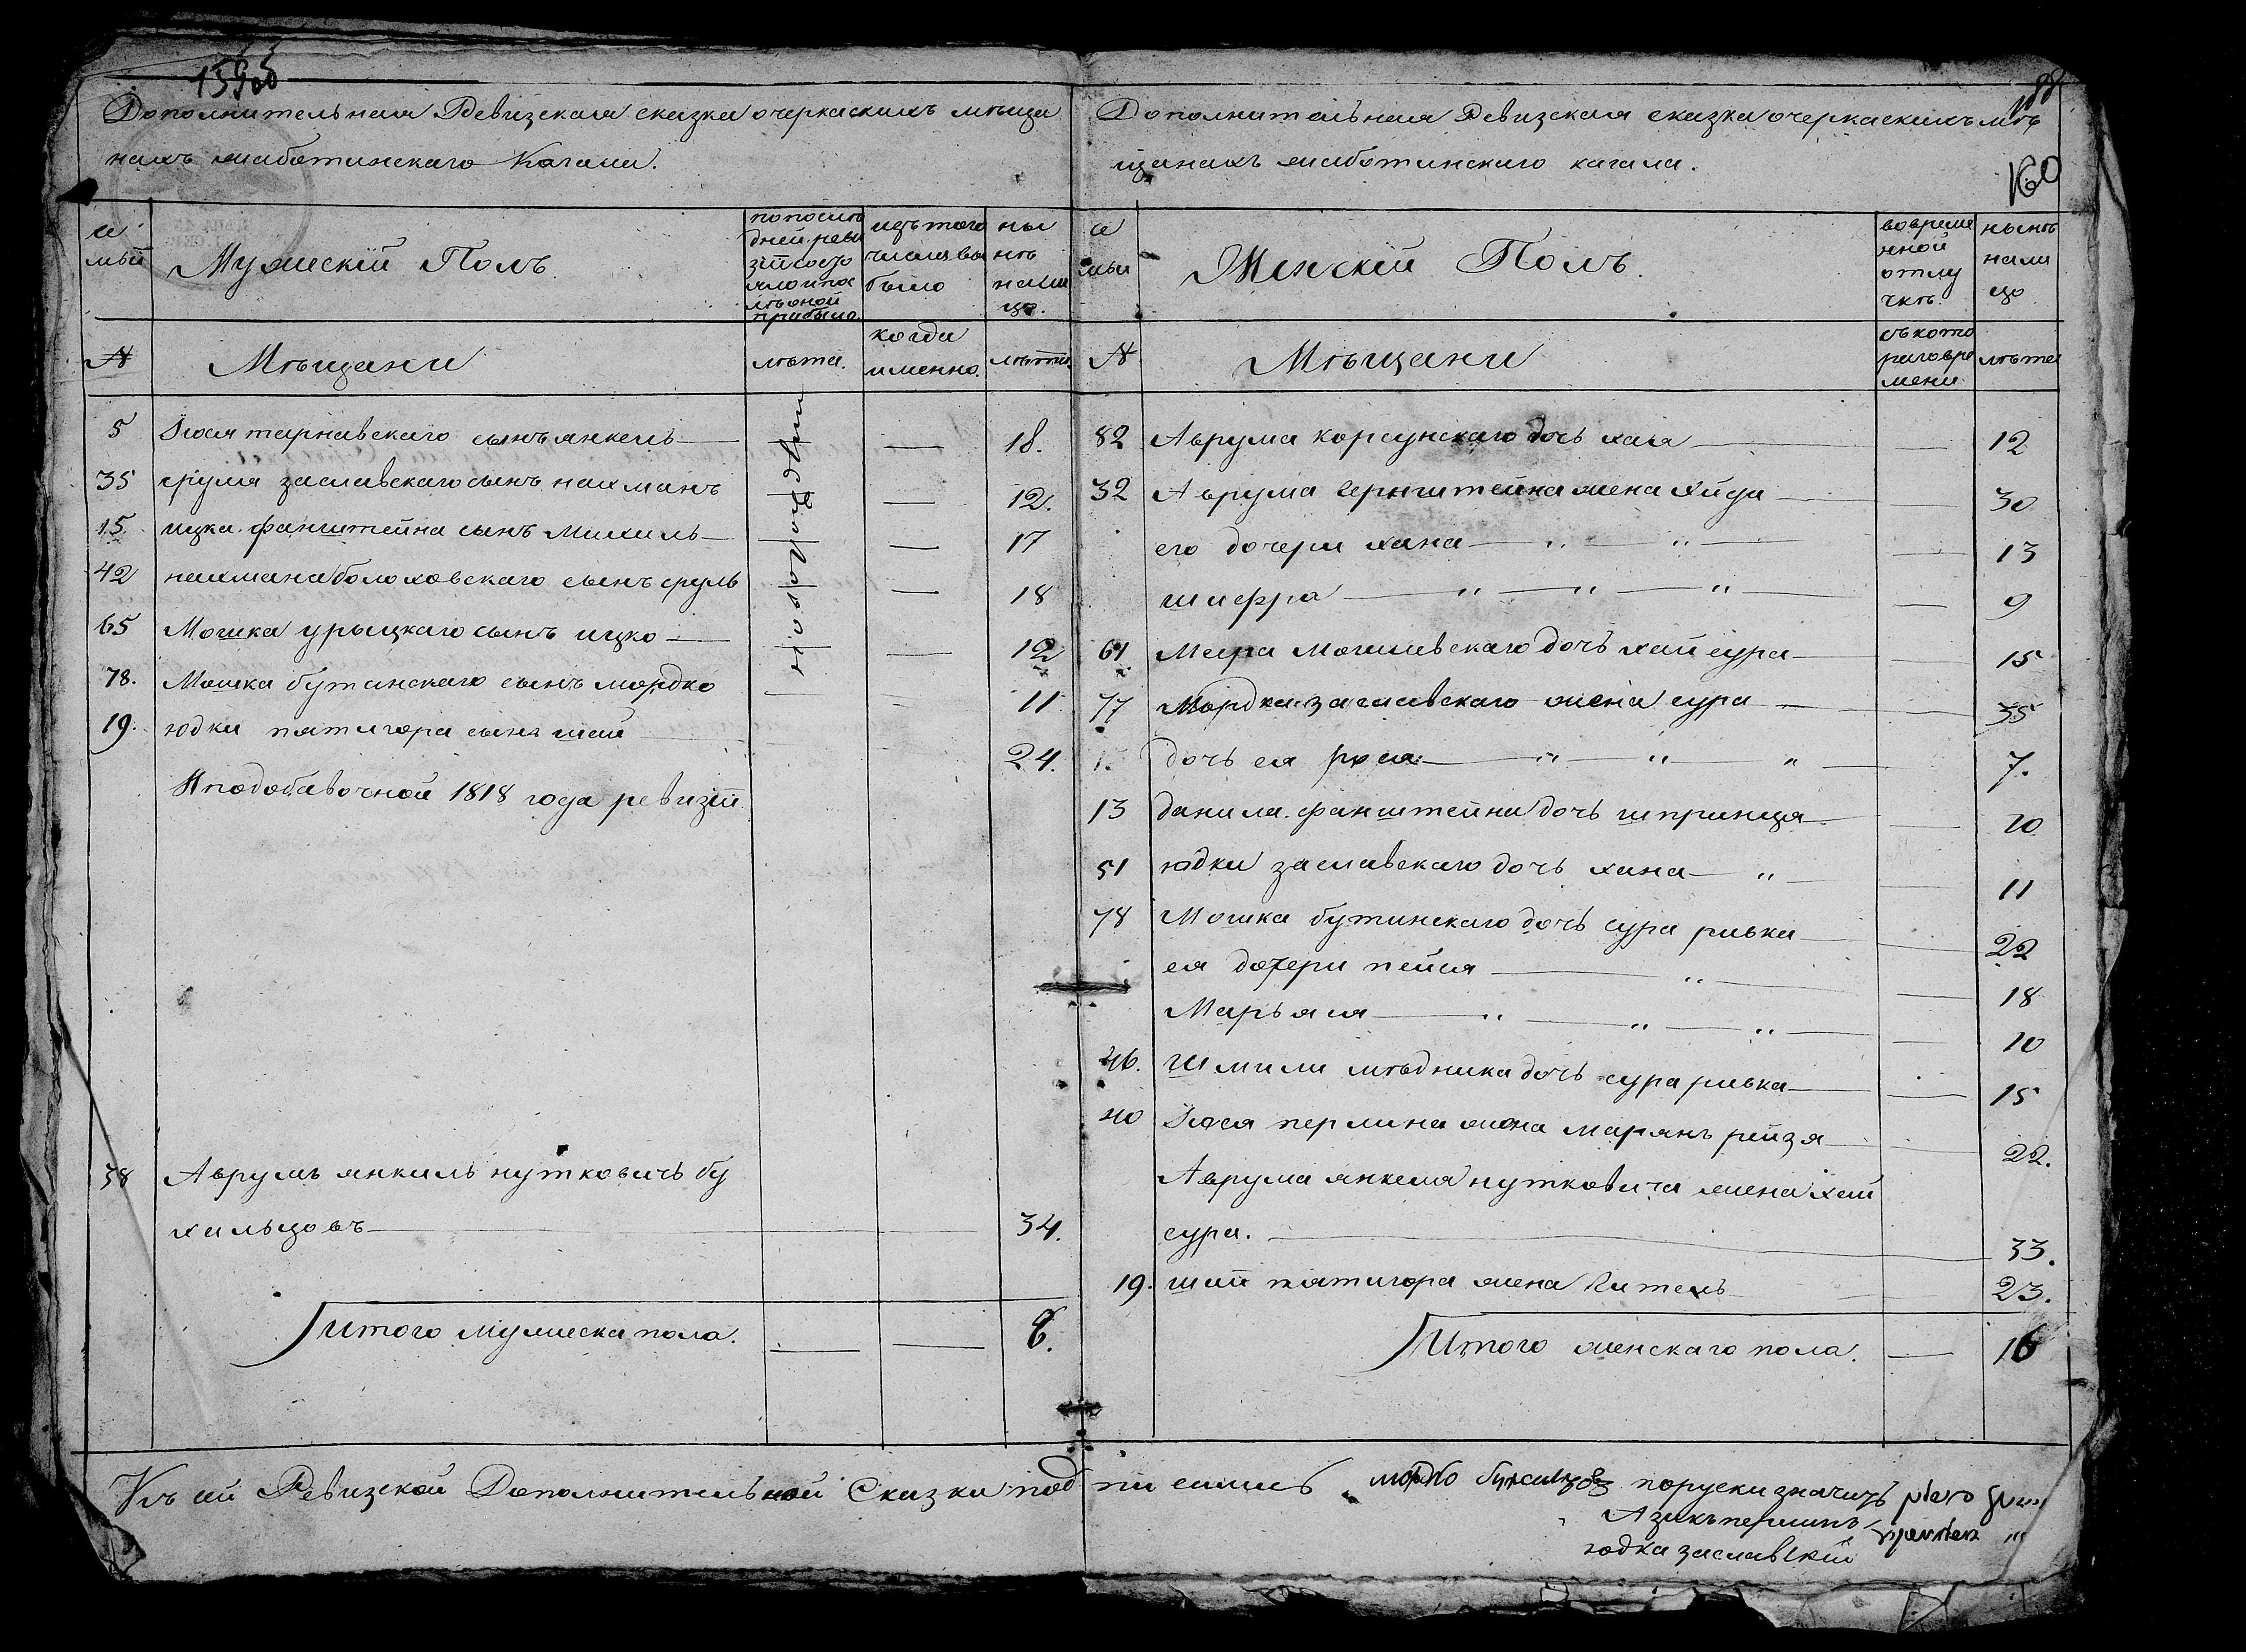 159об
Дополнительная Ревизская сказка очеркаскихъ мѣща
нахъ жаботинскаго Кагала.
се
мьи
Мужескій Полъ.
попослѣ
дней реви
зіи состо
яло и пос
лѣ оной
прибыло.
изъ того
числа вы
было
ны
нѣ
нали
цо.
№
Мѣщани
лѣта.
когда
именно.
лѣта.
новорожденни
5 Іося тарнавскаго сынъ янкель — — 18.
35 сруля заславскаго сынъ нахманъ — 12.
15. ицка фанштейна сынъ Михиль — — 17
42 нахмана болоховскаго сынъ сруль — 18
65 Мошка урыцкаго сынъ ицко — — 12
78. Мошка бутанскаго сынъ мордко — 11
19. юдки пятигора сынъ шая 24.
Подобавочной 1818 года ревизіи.
38 Аврумъ янкиль нутковичъ бу
хальцовъ — — 34.
Итого мужеска пола. — — 8.
188
160
Дополнительная Ревизская сказка очеркаскихъ мѣ
щанахъ жаботинскаго кагала.
се
мьи
Женскій Полъ.
вовреме
нной
отлу
чкѣ.
нынѣ
нали
цо
№
Мѣщани
съ кото
раго вре
мени
лѣта
82 Аврума корсунскаго дочь хая — — 12
32 Аврума бернштейна жена хйда — — 30
его дочери хана — „ „ — — 13
шифра — „ — „ — „ — — 9
61 Меера Могилевскаго дочь хая сура — — 15
77 Мордка заславскаго жена сура — — 35
дочь ея рося — „ — „ „ — 7.
13 данила фанштейна дочь шпринця — — 10
51 юдки заславскаго дочь хана — „ — — 11
78 Мошка бутинскаго дочь сура ривка — — 22
ея дочери пейся — „ — — 18
Марьяся — „ — „ — „ — — 10
46. Шмили мѣдника дочь сура ривка — — 15
40 Іося перлина жена марянъ рейзя — — 22.
Аврума янкеля нутковича жена хая
сура. — 33.
19. шаи пятигора жена Китель — 23.
Итого женскаго пола. — 16
Къ сей Ревизской Дополнительной Сказки подписались мордко бухальцов поруски значитъ
Азикъ перлинъ
юдка заславскій